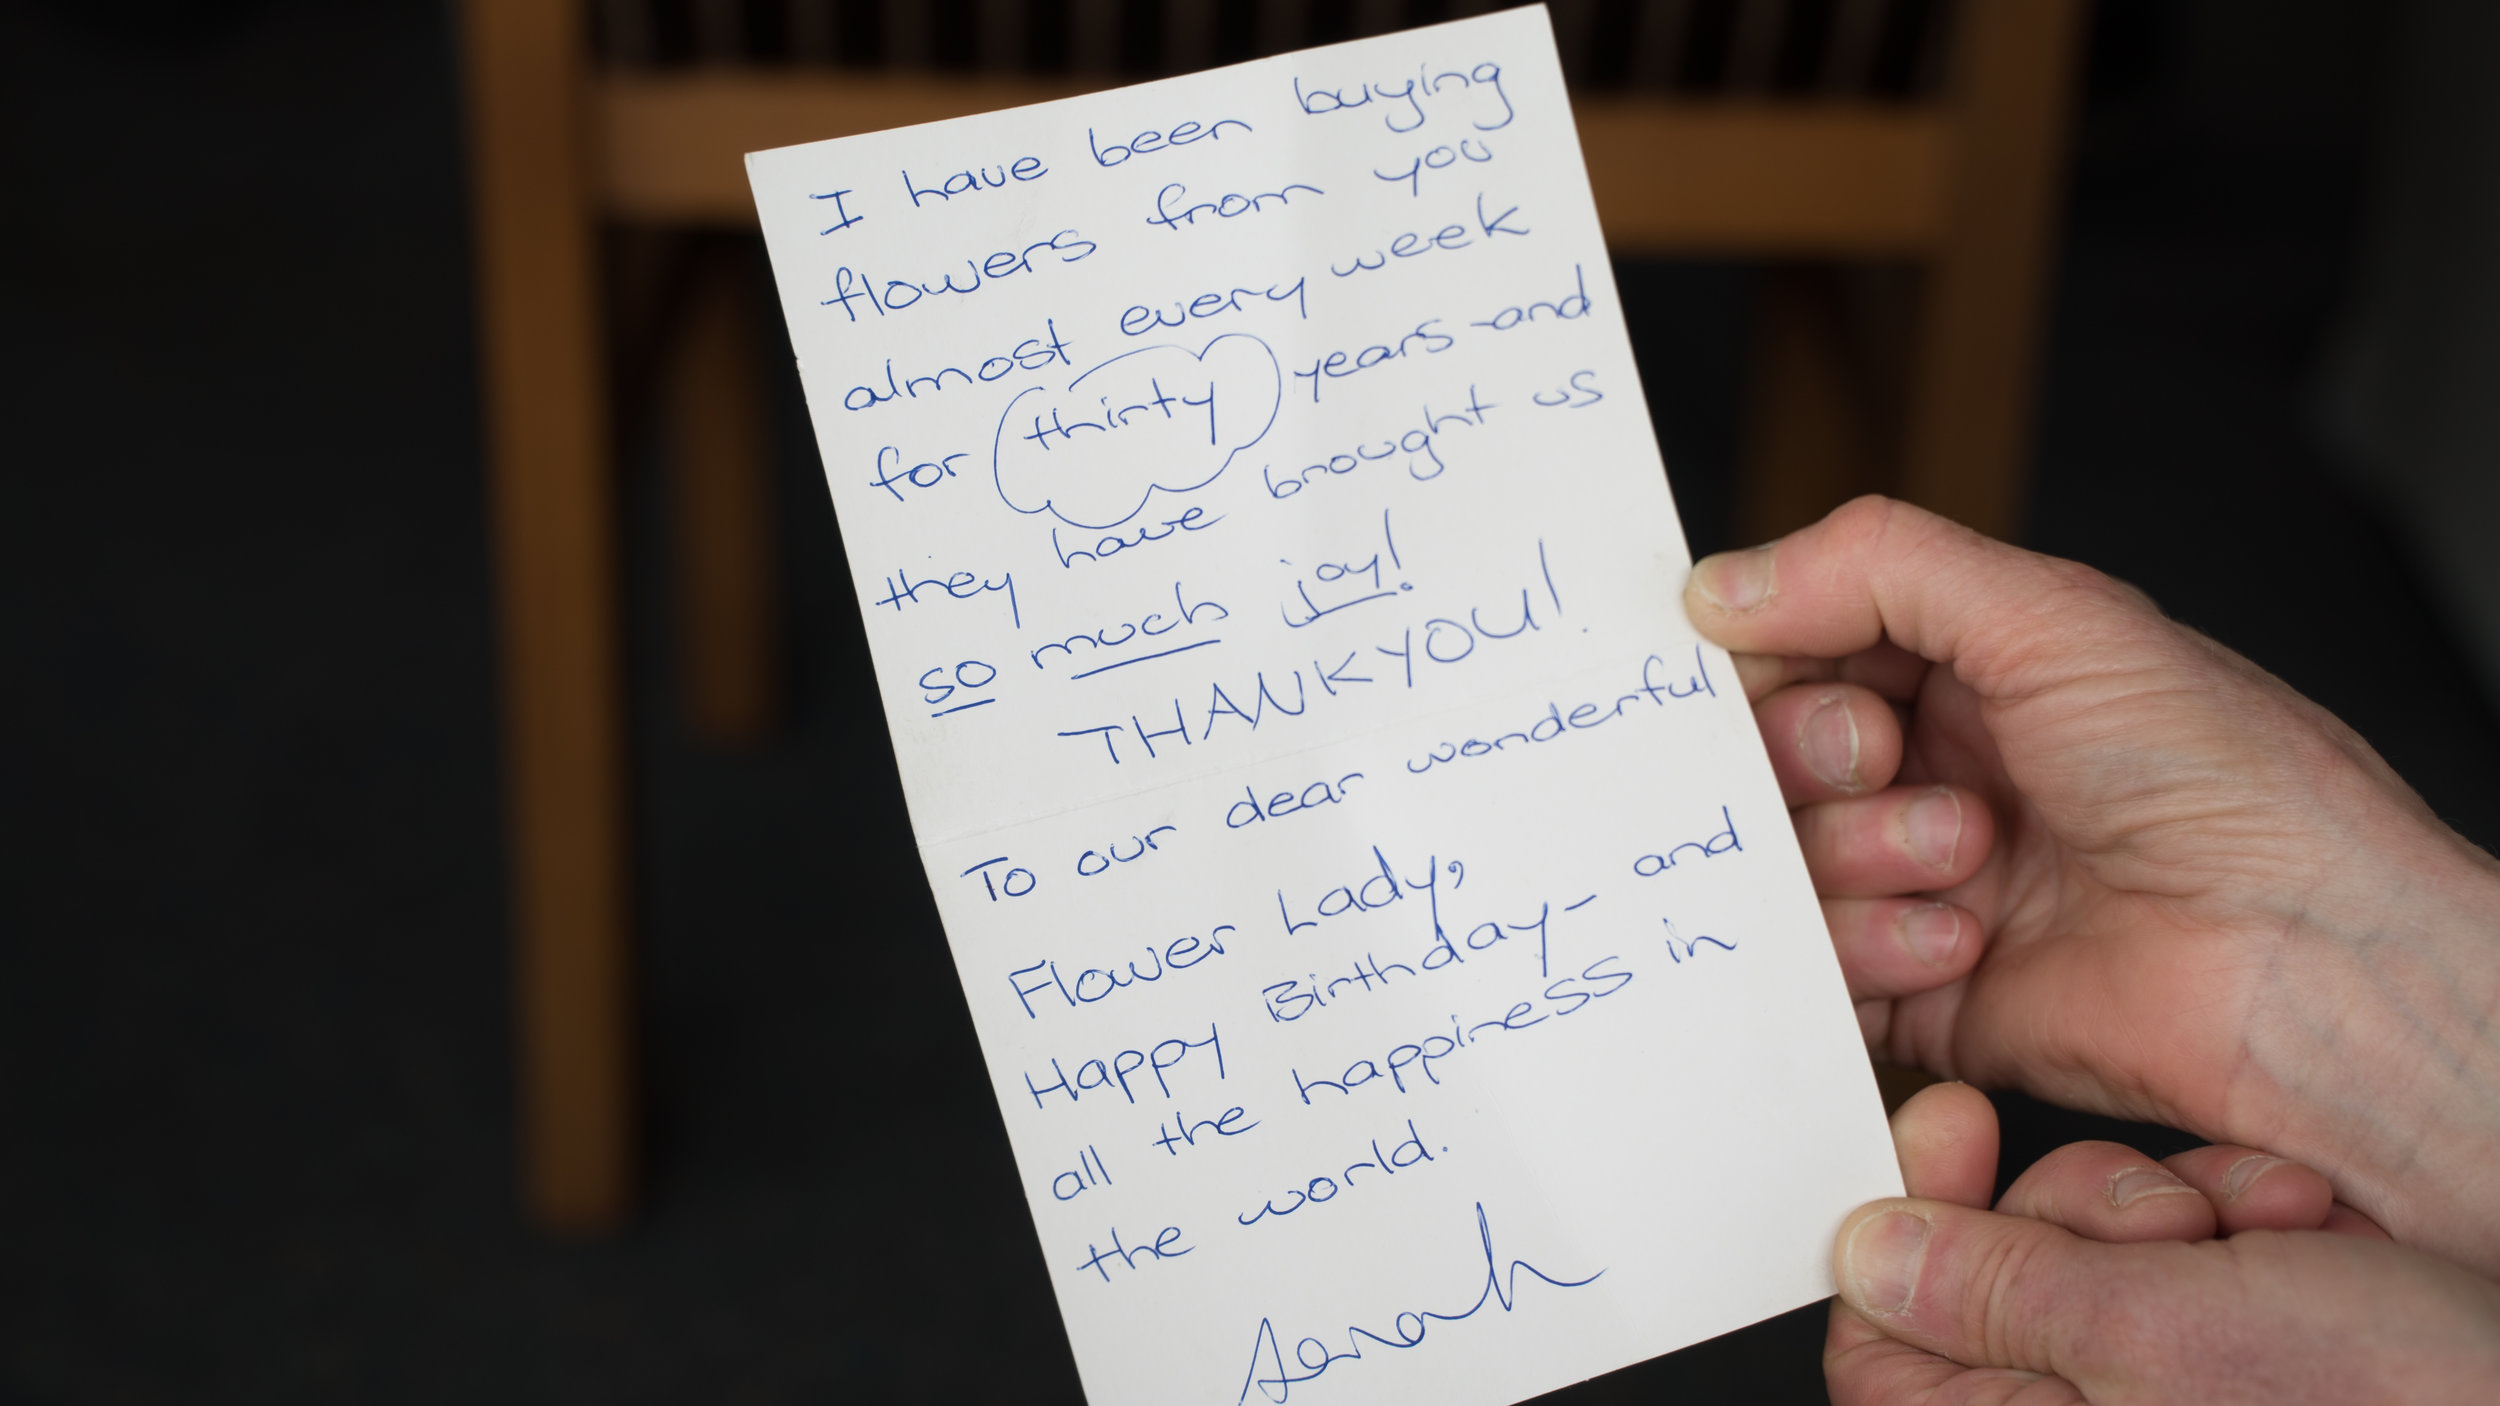 I have been buying
flowers from you
almost every week
for thirty years-and
they have brought us
so much joy!
THANK YOU!
To our dear wonderful
Flower Lady,
Happy Birthday- and
all the happiness in
the world.
Sarah